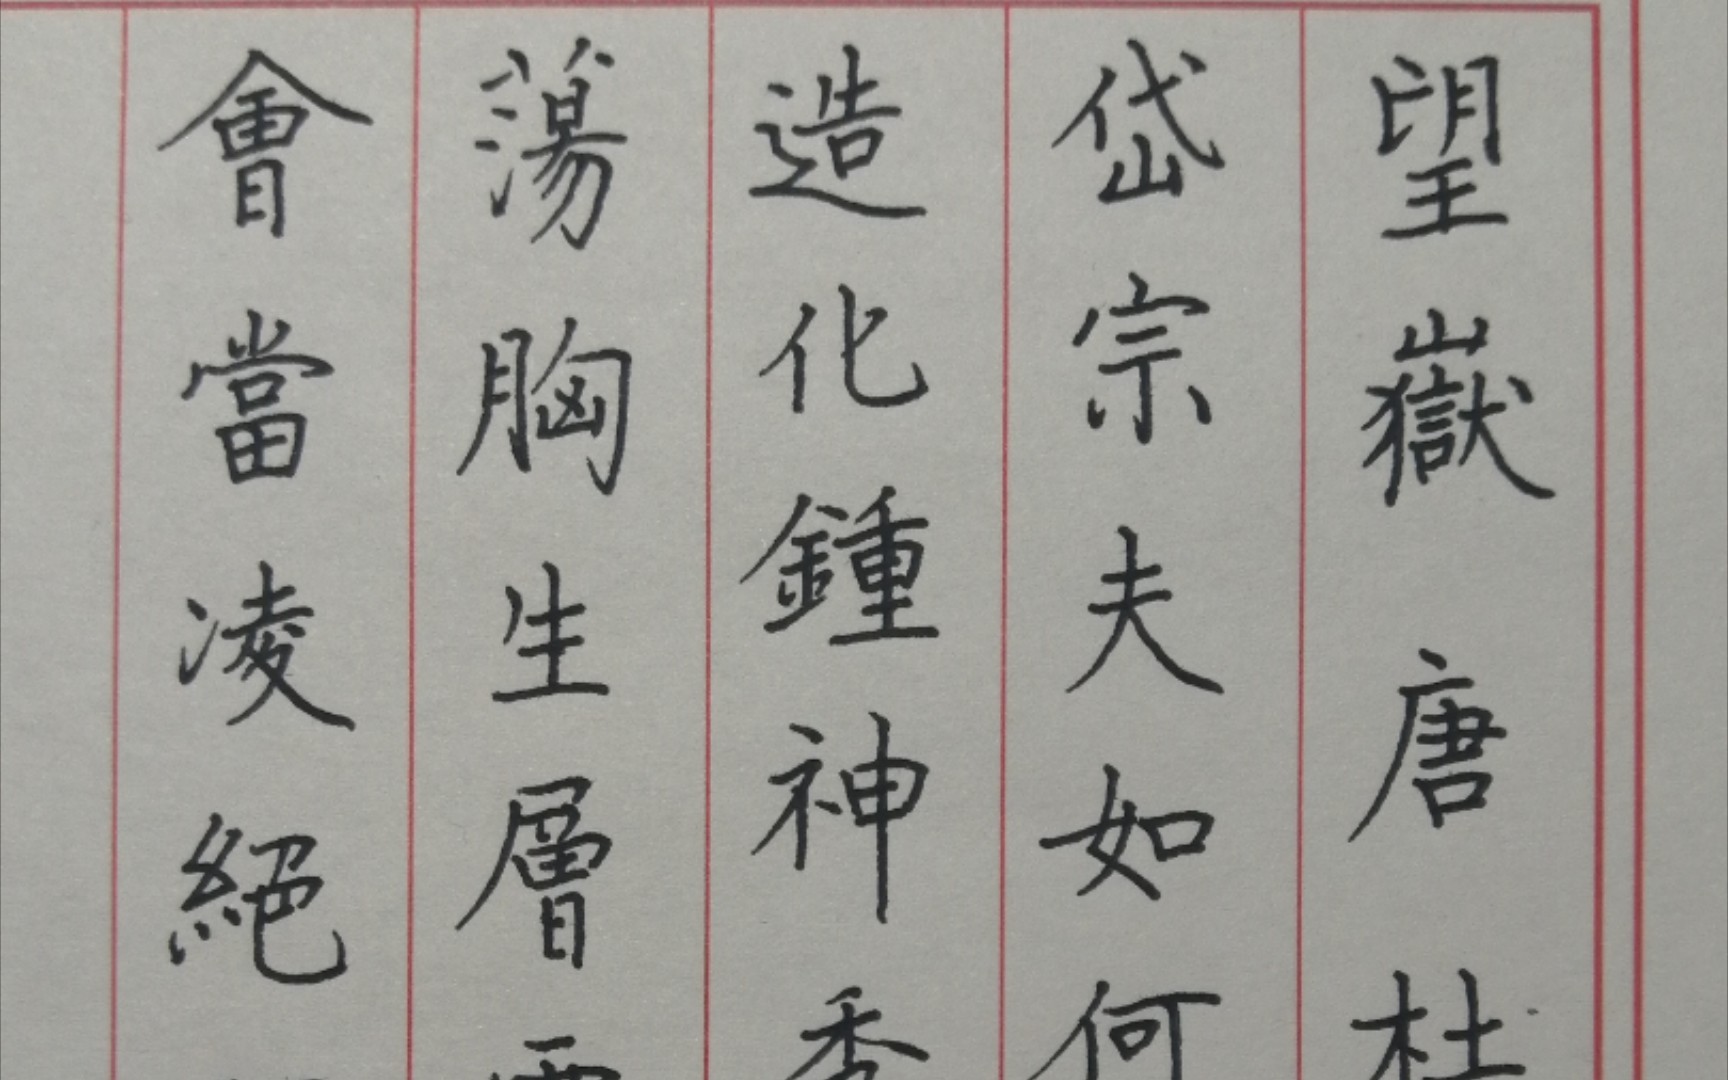 望嶽 唐 杜
岱宗夫如何
造化鍾神秀
蕩胸生層
會當凌絕